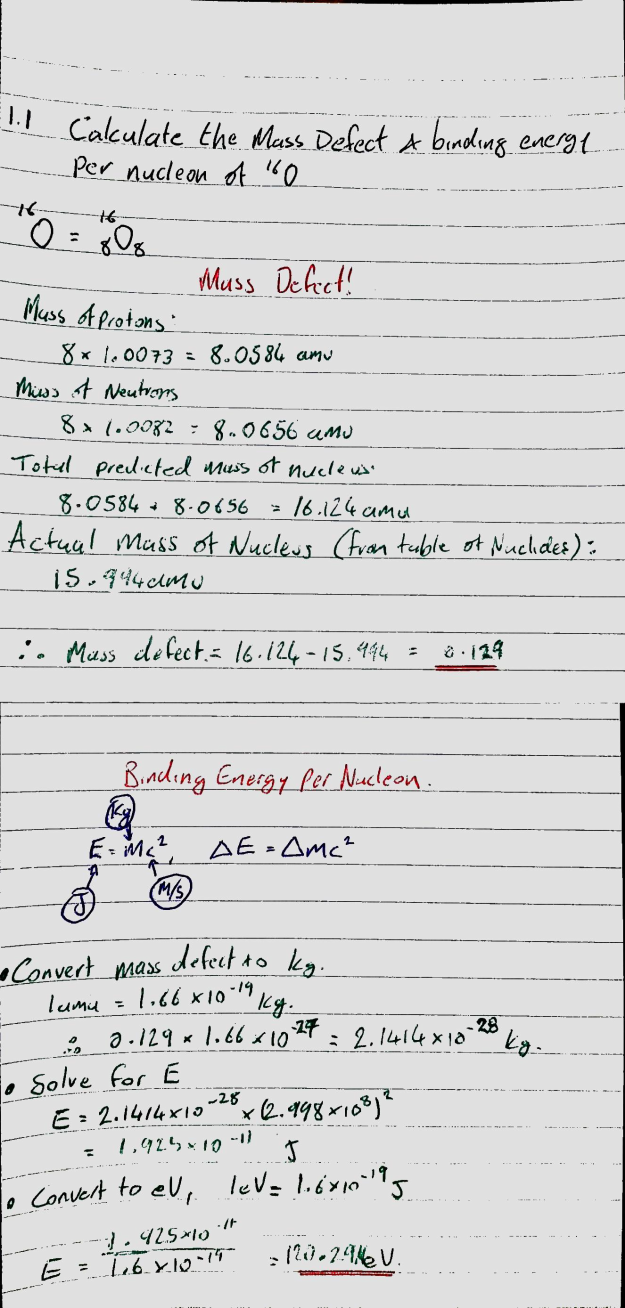 1.1 Calculate the Mass Defect & binding energy
Per nucleon of ¹⁶O
¹⁶O = ¹⁶₈O₈
Mass Defect!
Mass of Protons:
8 × 1.0073 = 8.0584 amu
Mass of Neutrons
8 × 1.0082 = 8.0656 amu
Total predicted mass of nucleus:
8.0584 + 8.0656 = 16.124 amu
Actual Mass of Nucleus (from table of Nuclides):
15.994 amu
∴ Mass defect = 16.124 - 15.994 = 0.129
Binding Energy Per Nucleon.
Kg
E = Mc², ΔE = Δmc²
J M/S
• Convert mass defect to kg.
1amu = 1.66 × 10⁻¹⁹ kg.
∴ 0.129 × 1.66 × 10⁻²⁷ = 2.1414 × 10⁻²⁸ kg.
• Solve for E
E = 2.1414 × 10⁻²⁸ × (2.998 × 10⁸)²
= 1.925 × 10⁻¹¹ J
• Convert to eV, 1eV = 1.6 × 10⁻¹⁹ J
1.925 × 10⁻¹¹
E = 1.6 × 10⁻¹⁹ = 120.29 MeV.